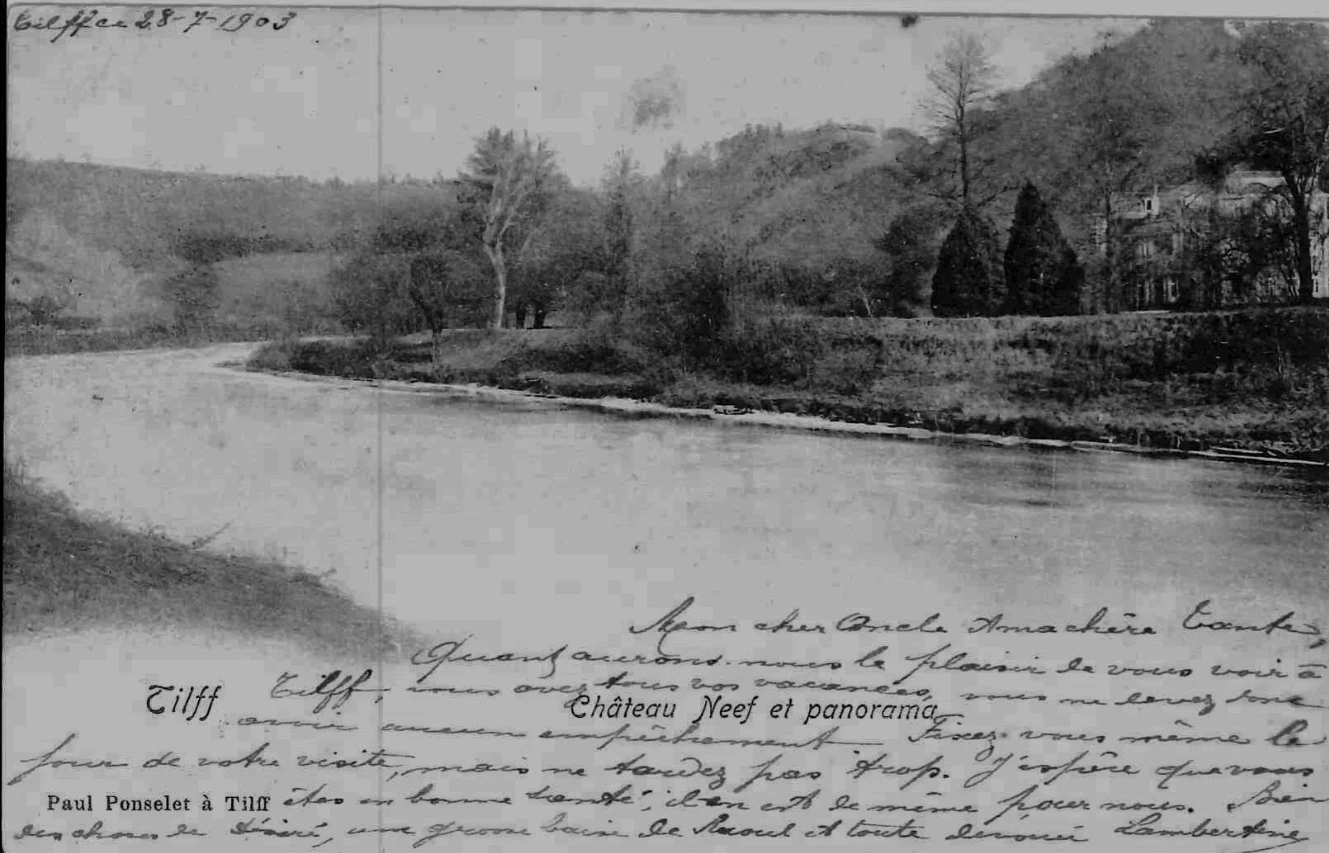 Tilff ce 28-7-1903
Mon cher Oncle & ma chère Tante,
Quand aurons-nous le plaisir de vous voir à
Tilff, vous avez tous vos vacances, vous ne devez donc
avoir aucun empêchement Fixez-vous même le
jour de votre visite, mais ne tardez pas trop. J'espère que vous
êtes en bonne santé, il en est de même pour nous. Bien
des choses de Désiré, une grosse baise de Raoul et toute dévouée Lambertine
Tilff
Château Neef et panorama
Paul Ponselet à Tilff